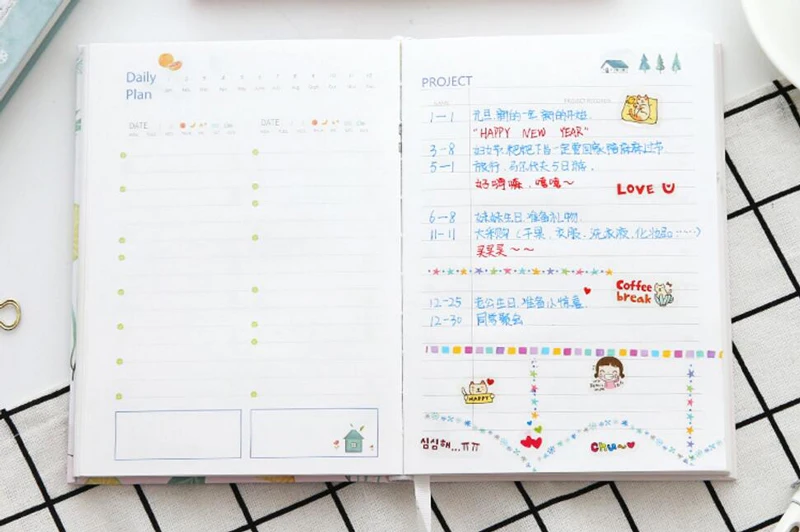 Daily
Plan
DATE
DATE
PROJECT
DATE
PROJECT RECORD
1-1 元旦.新的一年.新的开始.
"HAPPY NEW YEAR"
3-8 妇女节.
5-1 旅行.马尔代夫5日游.
好嗨森、嘻嘻~
LOVE
6-8 妹妹生日.准备礼物.
11-11 大采购(干果.衣服.洗衣液.化妆品……)
买买买~~
Coffee
break
12-25 老公生日.准备小惊喜.
12-30 同学聚会
HAPPY
심심해...ㅠㅠ
CHU~